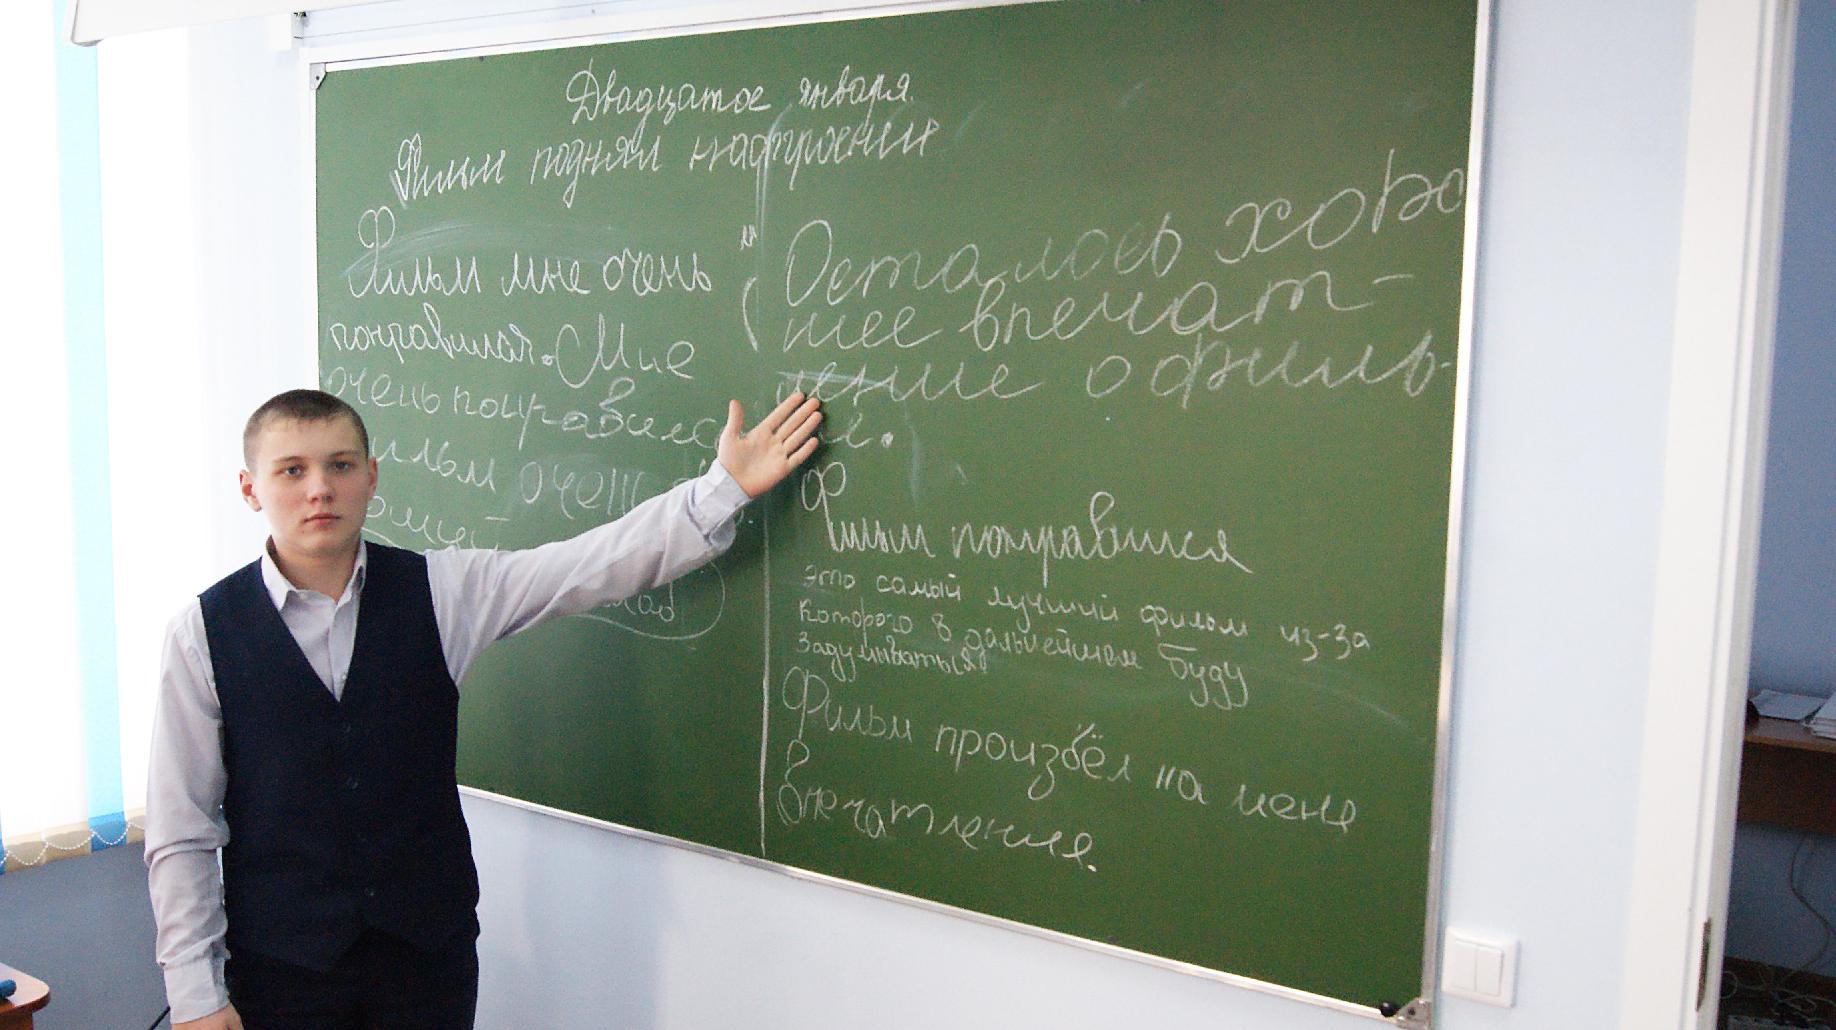 Двадцатое января.
Фильм поднял настроении
Фильм мне очень
понравился. Мне
очень понравилс
ильм очень
"Осталось хоро
шее впечат-
ление о филь-
м
Фильм понравился
это самый лучший фильм из-за
которого в дальнейшем буду
задумываться
Фильм произвёл на меня
впечатления.